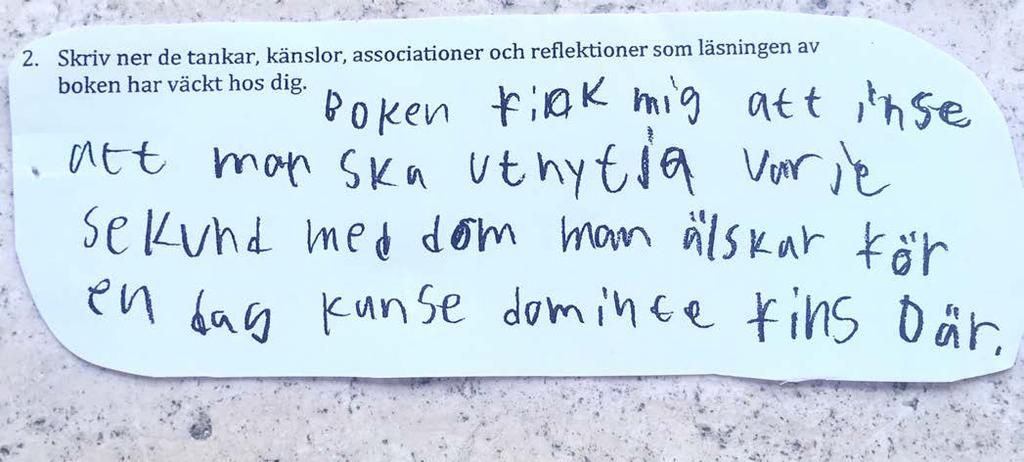 2. Skriv ner de tankar, känslor, associationer och reflektioner som läsningen av
boken har väckt hos dig.
Boken fick mig att inse
att man ska utnytja varje
sekund med dom man älskar för
en dag kanse dominte fins Där.